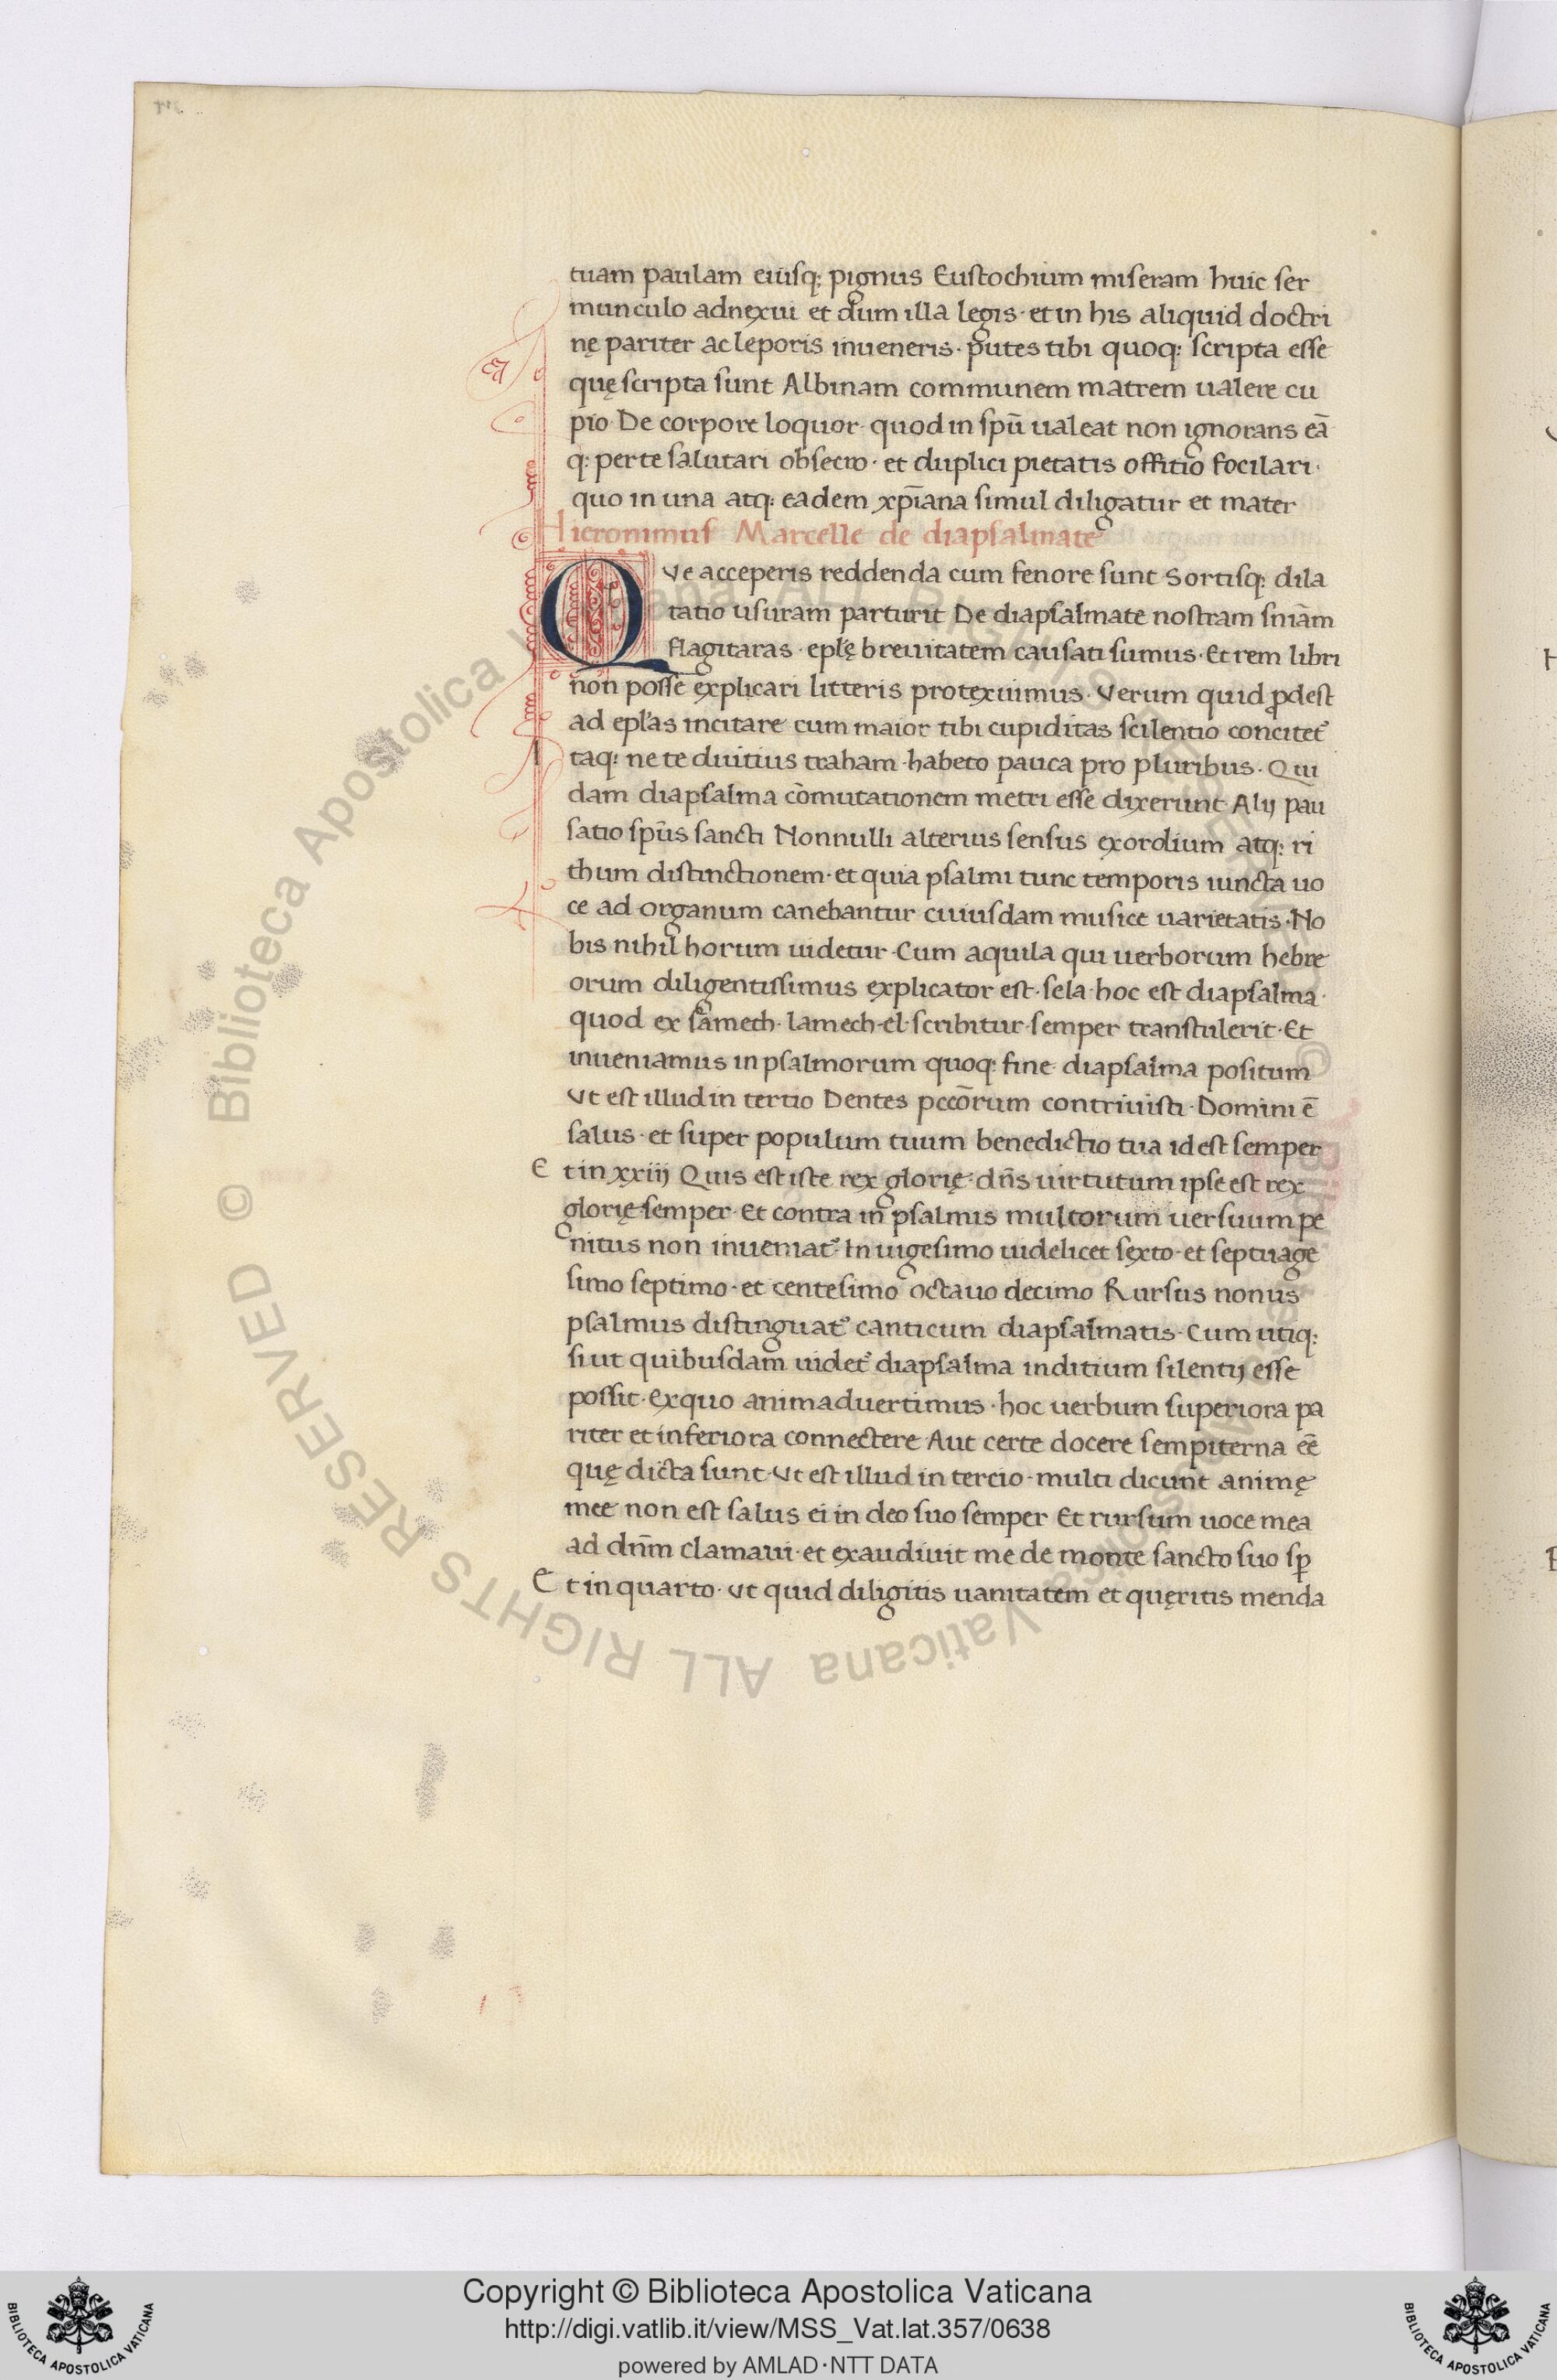 tuam paulam eiusq; pignus Eustochium miseram huic ser
munculo adnexui et dum illa legis· et in his aliquid doctri
nę pariter ac leporis inueneris· putes tibi quoq: scripta esse
quę scripta sunt Albinam communem matrem ualere cu
pio De corpore loquor· quod in spū ualeat non ignorans eā
q: per te salutari obsecro· et duplici pietatis offitio focilari·
quo in una atq: eadem xp̄iana simul diligatur et mater
Hieronimus Marcelle de diapsalmate
Qve acceperis reddenda cum fenore sunt Sortisq: dila
tatio usuram parturit De diapsalmate nostram sn̄iam
flagitaras· epl̄ę breuitatem causati sumus· Et rem libri
non posse explicari litteris protexuimus· Verum quid ꝓdest
ad epl̄as incitare cum maior tibi cupiditas scilentio concitet᷑
Itaq: ne te diutius traham· habeto pauca pro pluribus· Qui
dam diapsalma cōmutationem metri esse dixerunt Alij pau
satio sp̄us sancti Nonnulli alterius sensus exordium atq: ri
thum distinctionem· et quia psalmi tunc temporis iuncta uo
ce ad organum canebantur cuiusdam musice uarietatis· No
bis nihil horum uidetur· Cum aquila qui uerborum hebre
orum diligentissimus explicator est· sela· hoc est diapsalma·
quod ex samech· lamech· el· scribitur· semper transtulerit· Et
inueniamus in psalmorum quoq: fine diapsalma positum
Vt est illud in tertio Dentes pccōrum contriuisti· Domini ē
salus· et super populum tuum benedictio tua id est semper
Et in xxiij Quis est iste rex glorię· dn̄s uirtutum ipse est rex
glorię semper· Et contra in psalmis multorum uersuum pe
nitus non inueniat᷑· In uigesimo uidelicet sexto· et septuage
simo septimo· et centesimo octauo decimo Rursus nonus
psalmus distinguat᷑ canticum diapsalmatis· Cum utiq:
si ut quibusdam uidet᷑ diapsalma inditium silentij esse
possit· Ex quo animaduertimus· hoc uerbum superiora pa
riter et inferiora connectere Aut certe docere sempiterna eē
quę dicta sunt· Vt est illud in tercio· multi dicunt animę
mee non est salus ei in deo suo semper Et rursum uoce mea
ad dn̄m clamaui· et exaudiuit me de monte sancto suo sꝑ
Et in quarto· ut quid diligitis uanitatem et quęritis menda
© Biblioteca Apostolica Vaticana ALL RIGHTS RESERVED
Copyright © Biblioteca Apostolica Vaticana
http://digi.vatlib.it/view/MSS_Vat.lat.357/0638
powered by AMLAD·NTT DATA
BIBLIOTECA APOSTOLICA VATICANA
BIBLIOTECA APOSTOLICA VATICANA